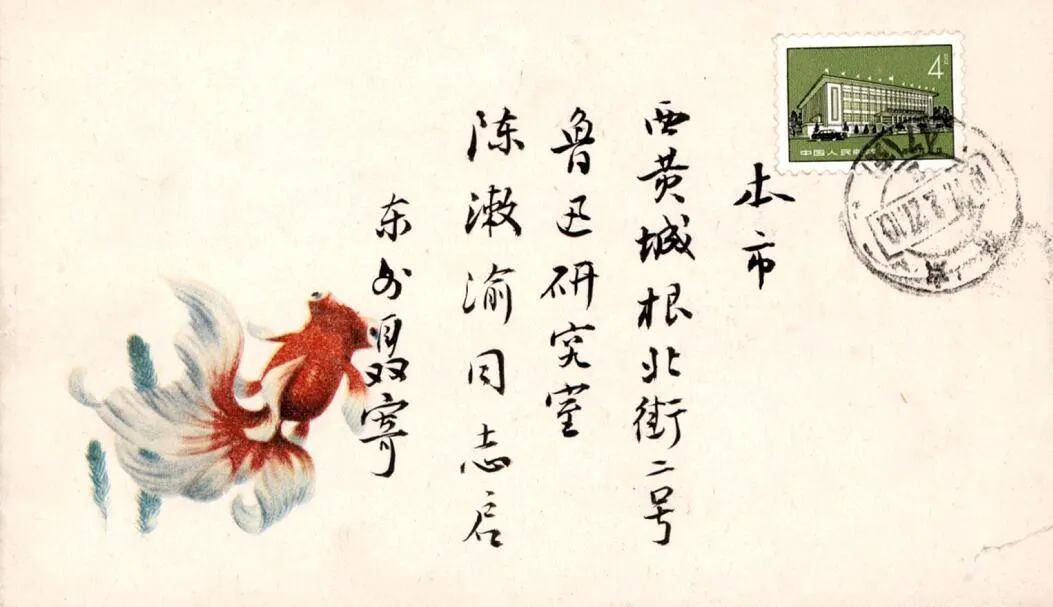 本市
西黄城根北街二号
鲁迅研究室
陈漱渝同志启
东外聂寄
4
中国人民邮政